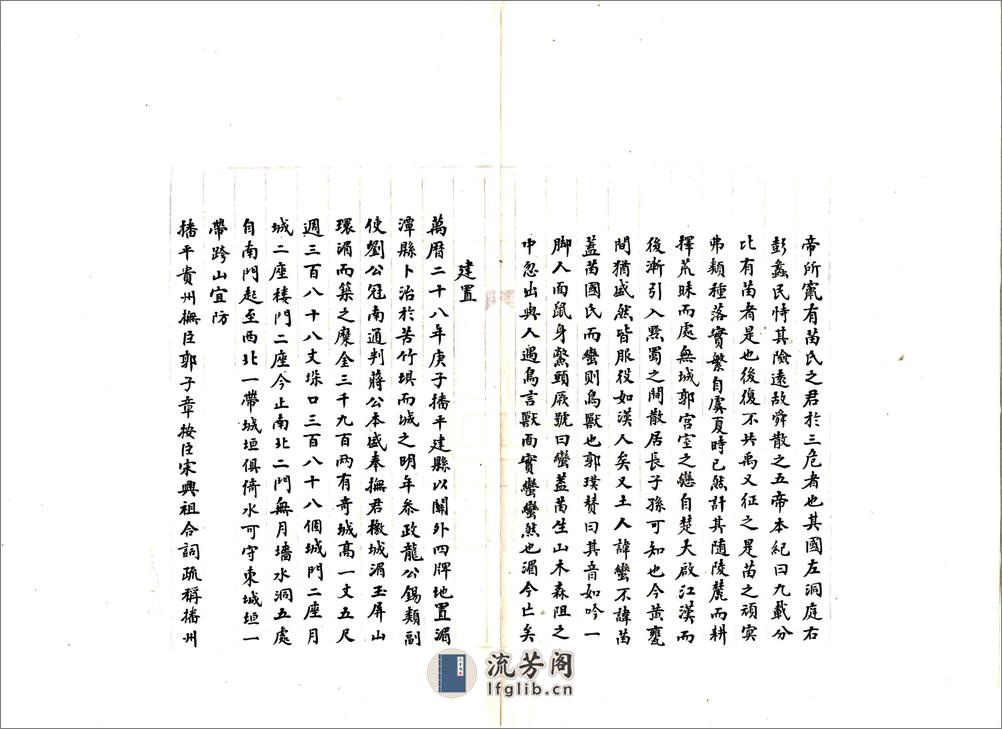 帝所竄有苗氏之君於三危者也其國左洞庭右
彭蠡民恃其險遠故舜散之五帝本紀曰九載分
比有苗者是也後復不共禹又征之是苗之頑冥
弗類種落實繁自虞夏時已然計其随陵麓而耕
擇荒昧而處無城郭宮室之戀自楚大啟江漢而
後漸引入黔蜀之間散居長子孫可知也今黃甕
間猶盛然皆服役如漢人矣又土人諱蠻不諱苗
蓋苗國氏而蠻則鳥獸也郭璞贊曰其音如吟一
脚人面鼠身鱉頭厥號曰蠻蓋苗生山木森阻之
中忽出與人遇鳥言獸面實蠻蠻然也湄今亡矣
建置
萬曆二十八年庚子播平建縣以關外四牌地置湄
潭縣卜治於苦竹垻而城之明年叅政龍公錫類副
使劉公冠南通判蔣公本盛奉撫君檄城湄玉屏山
環湄而築之糜金三千九百两有奇城高一丈五尺
週三百八十八丈垜口三百八十八個城門二座月
城二座楼門二座今止南北二門無月墻水洞五處
自南門起至西北一帶城垣俱倚水可守東城垣一
帶跨山宜防
播平貴州撫臣郭子章按臣宋興祖合詞疏稱播州
流芳阁
lfglib.cn